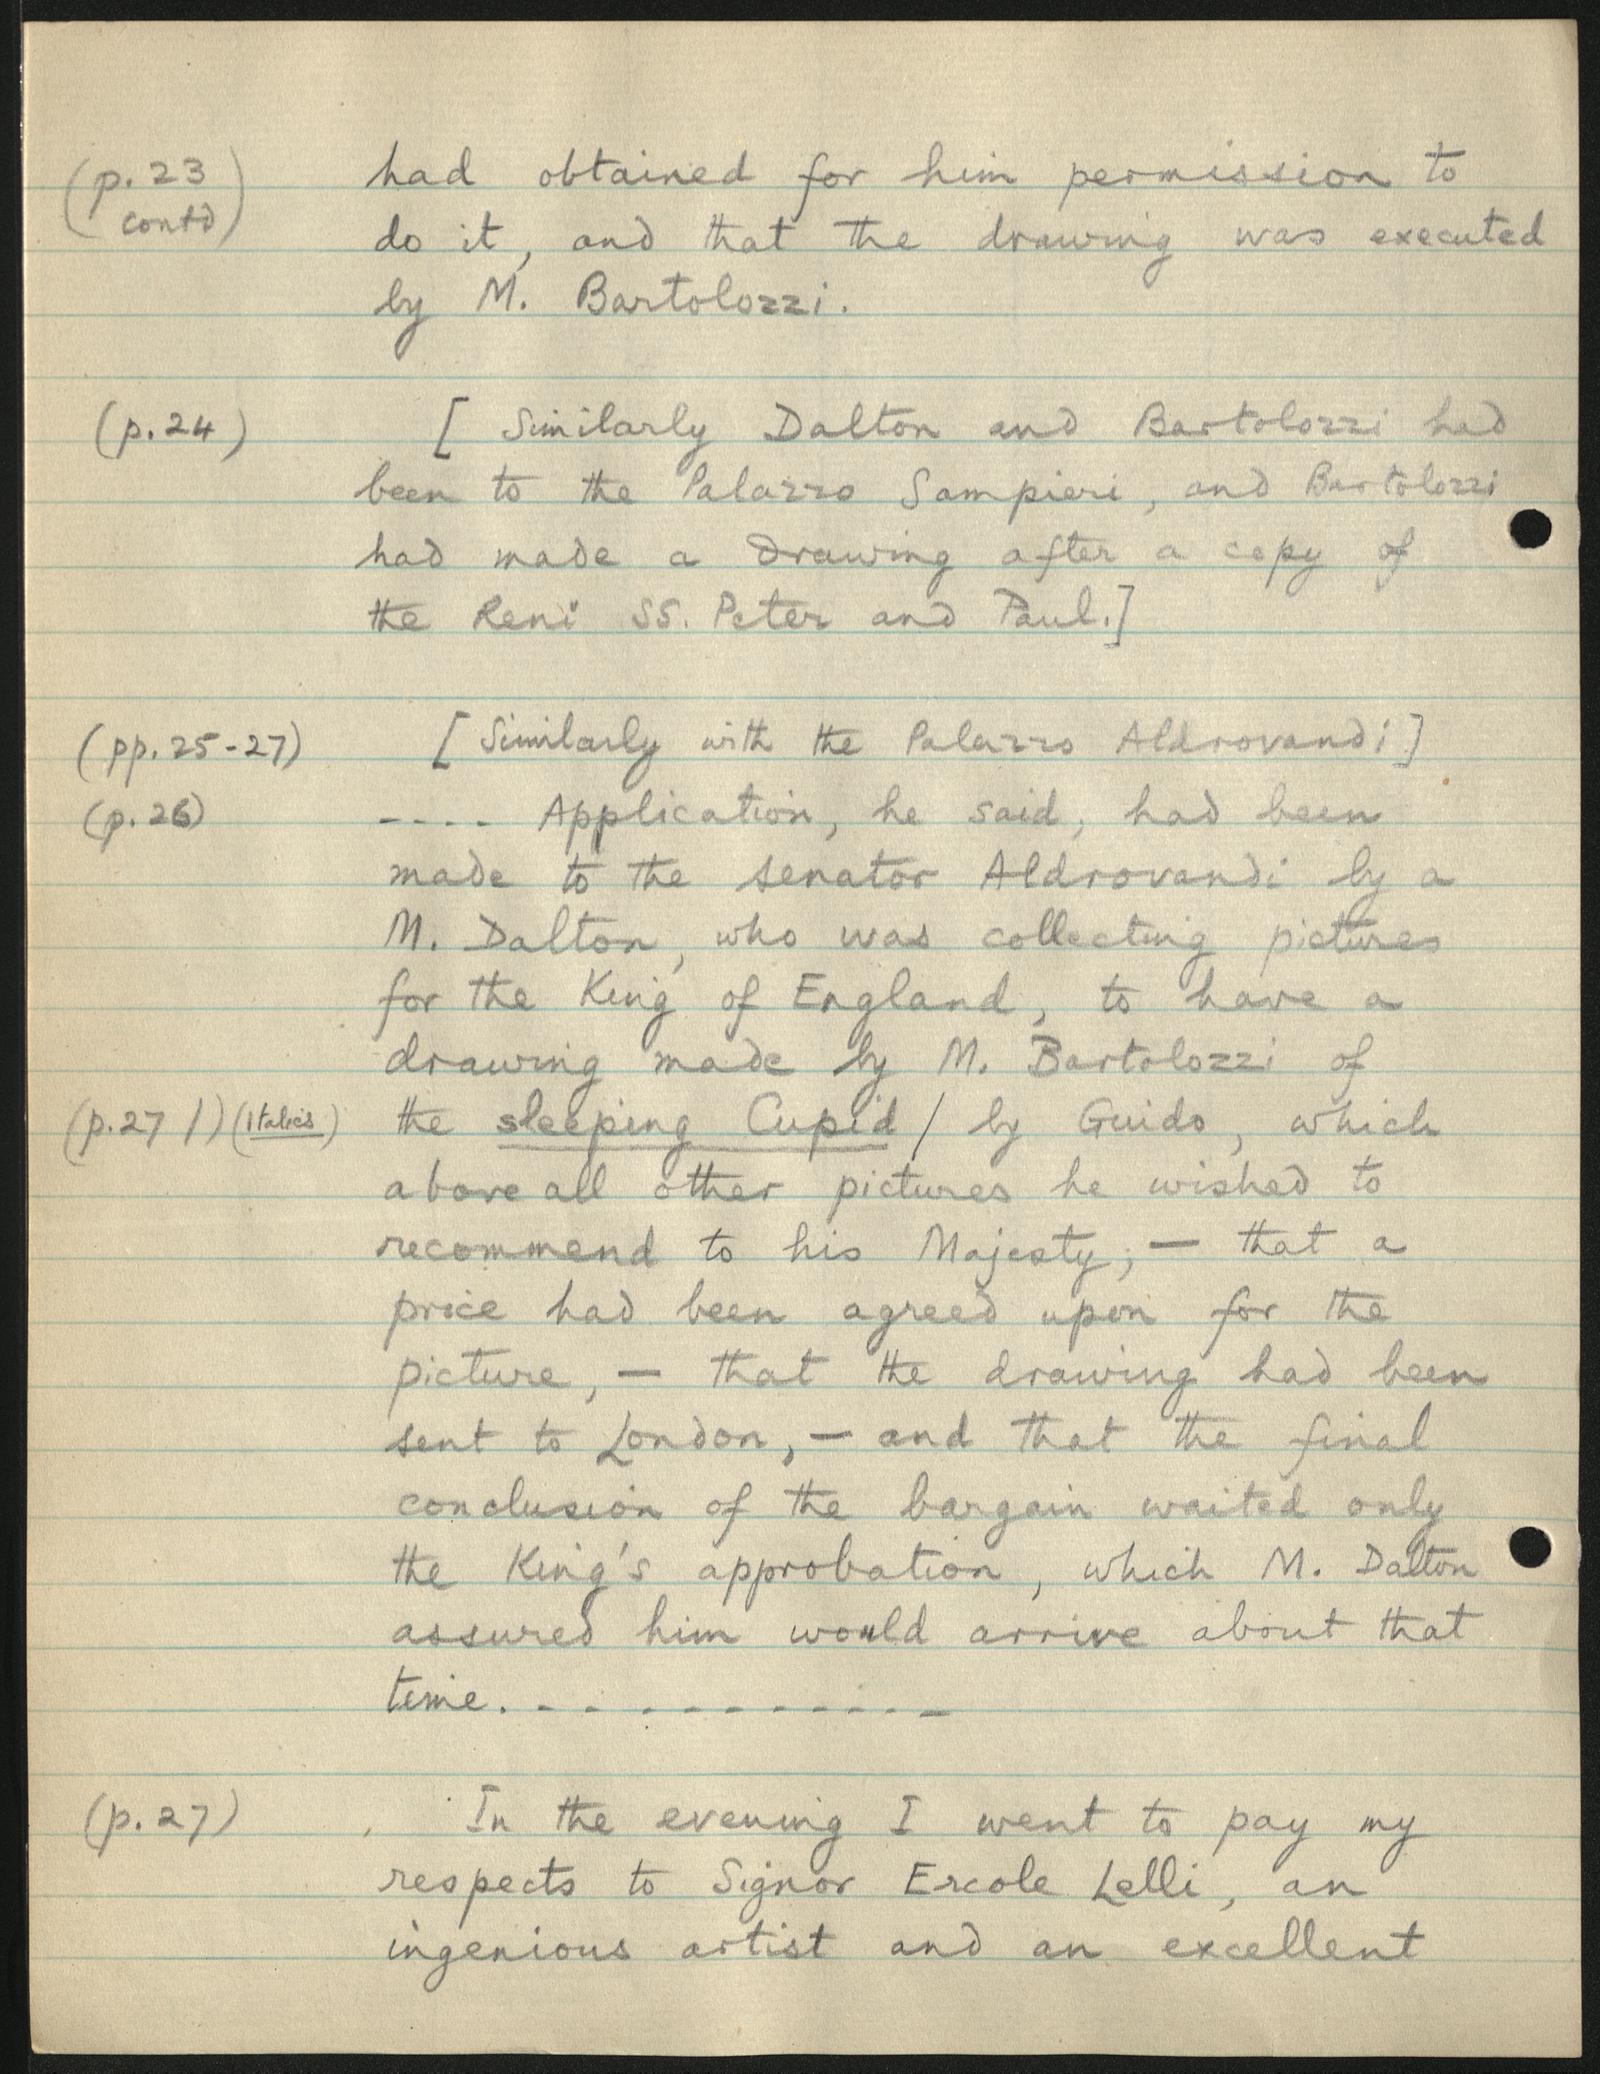 (p. 23 had obtained for him permission to
contd) do it, and that the drawing was executed
by M. Bartolozzi.
(p. 24) [ Similarly Dalton and Bartolozzi had
been to the Palazzo Sampieri, and Bartolozzi
had made a drawing after a copy of
the Reni SS. Peter and Paul.]
(pp. 25-27) [ Similarly with the Palazzo Aldrovandi]
(p. 26) ---- Application, he said, had been
made to the senator Aldrovandi by a
M. Dalton, who was collecting pictures
for the King of England, to have a
drawing made by M. Bartolozzi of
(p. 27 /) (Italics) the sleeping Cupid / by Guido, which
above all other pictures he wished to
recommend to his Majesty; — that a
price had been agreed upon for the
picture, — that the drawing had been
sent to London, — and that the final
conclusion of the bargain waited only
the King's approbation, which M. Dalton
assured him would arrive about that
time. - - - - - - - - - -
(p. 27) In the evening I went to pay my
respects to Signor Ercole Lelli, an
ingenious artist and an excellent